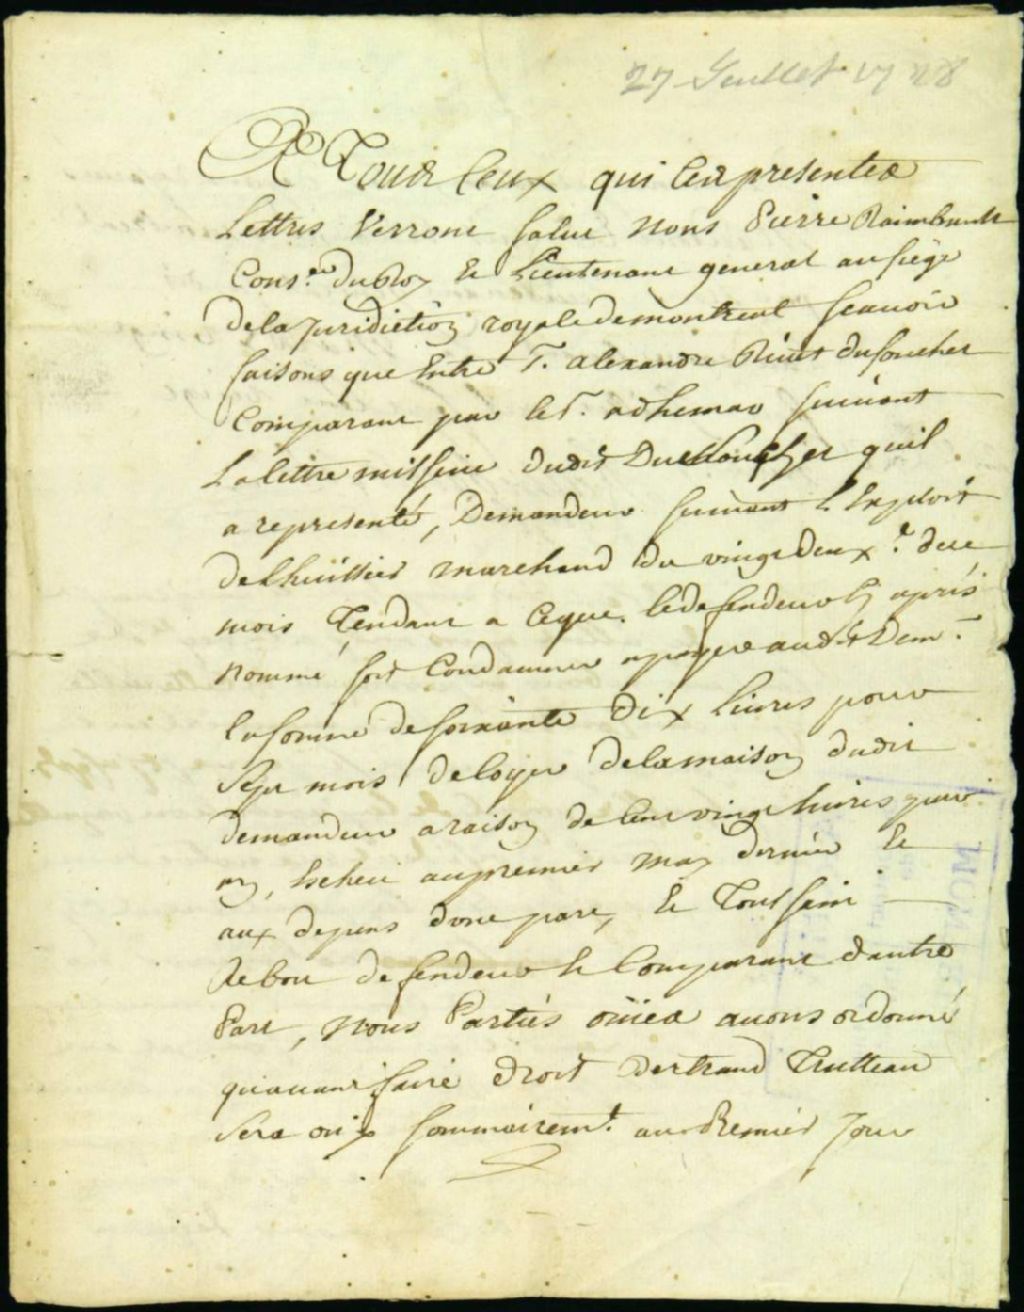 27 Juillet 1728
A Tous Ceux qui Ces presentes
Lettres Verront Salut Nous Pierre Raimbault
Cons.er du Roy Et Lieutenant general au siege
de la juridiction royalle de montreal scavoir
faisons que Entre S. alexandre
Comparant par le S. adhemar suivant
La lettre missive dudit qu'il
a representé, Demandeur suivant l'Exploit
de Lhuissier marchand du vingt deux.e de ce
mois Tendant a Ceque le defendeur Cy après
Nommé soit Condamné a payer audit Dem.
la somme de soixante Dix livres pour
Sept mois de loyer de la maison dudit
demandeur a raison de cent vingt livres par
an, Escheu au premier may dernier Et
aux depens d'une part, Et Toussaint
defendeur Et Comparant d'autre
Part, Nous Parties ouïes avons ordonné
qu'avant faire droit Bertrand Trutteau
Sera ouÿ sommairem.t au Premier Jour